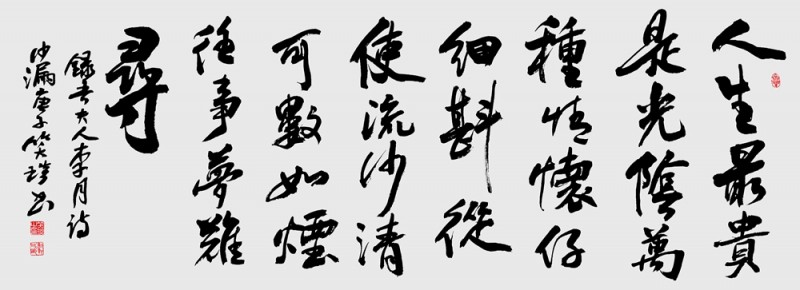 人生最貴
是光陰萬
種情懷仔
細斟從
使流沙清
可數如煙
往事夢難
尋
錄大人李月詩
沙漏庚子笑書